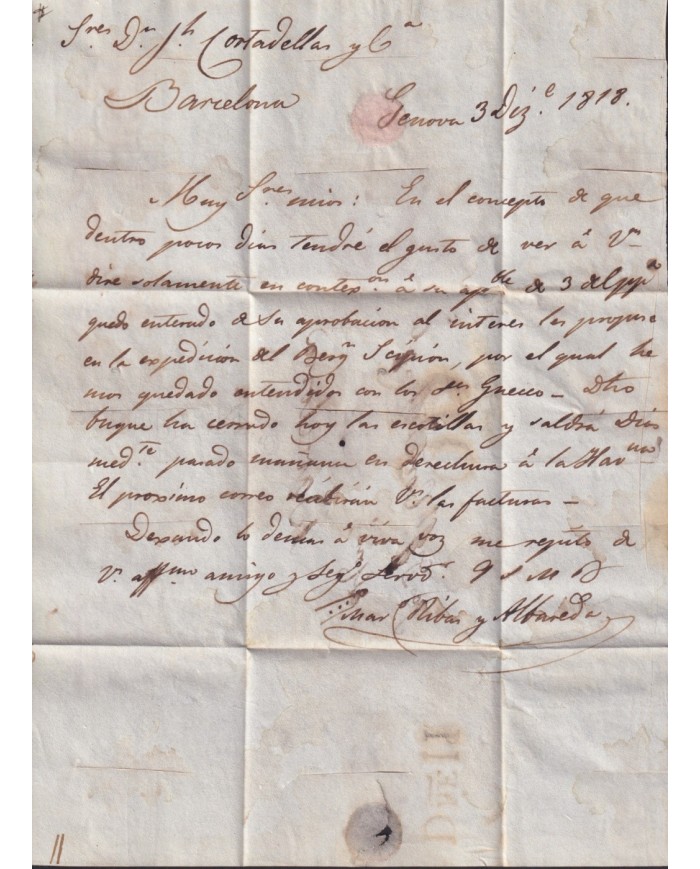 Sres Dn Jh Cortadellas y Ca
Barcelona
Genova 3 Dize 1818.
Muy Sres mios: En el concepto de que
dentro pocos dias tendré el gusto de ver á Vs
dire solamente en contexon á su apble de 3 del ppdo
quedo enterado de su aprobacion al interes les propuse
en la expedición del Bergn Scipión, por el qual he
mos quedado entendidos con los Sres Guecco - Dho
buque ha cerrado hoy las escotillas y saldrá Dios
medte pasado mañana en derechura á la Havana
El proximo correo recibirán Vs. las facturas -
Dexando lo demas á viva voz me repito de
Vs affmo amigo y Sego Servdr Q S M B
Marno Ribas y Albareda